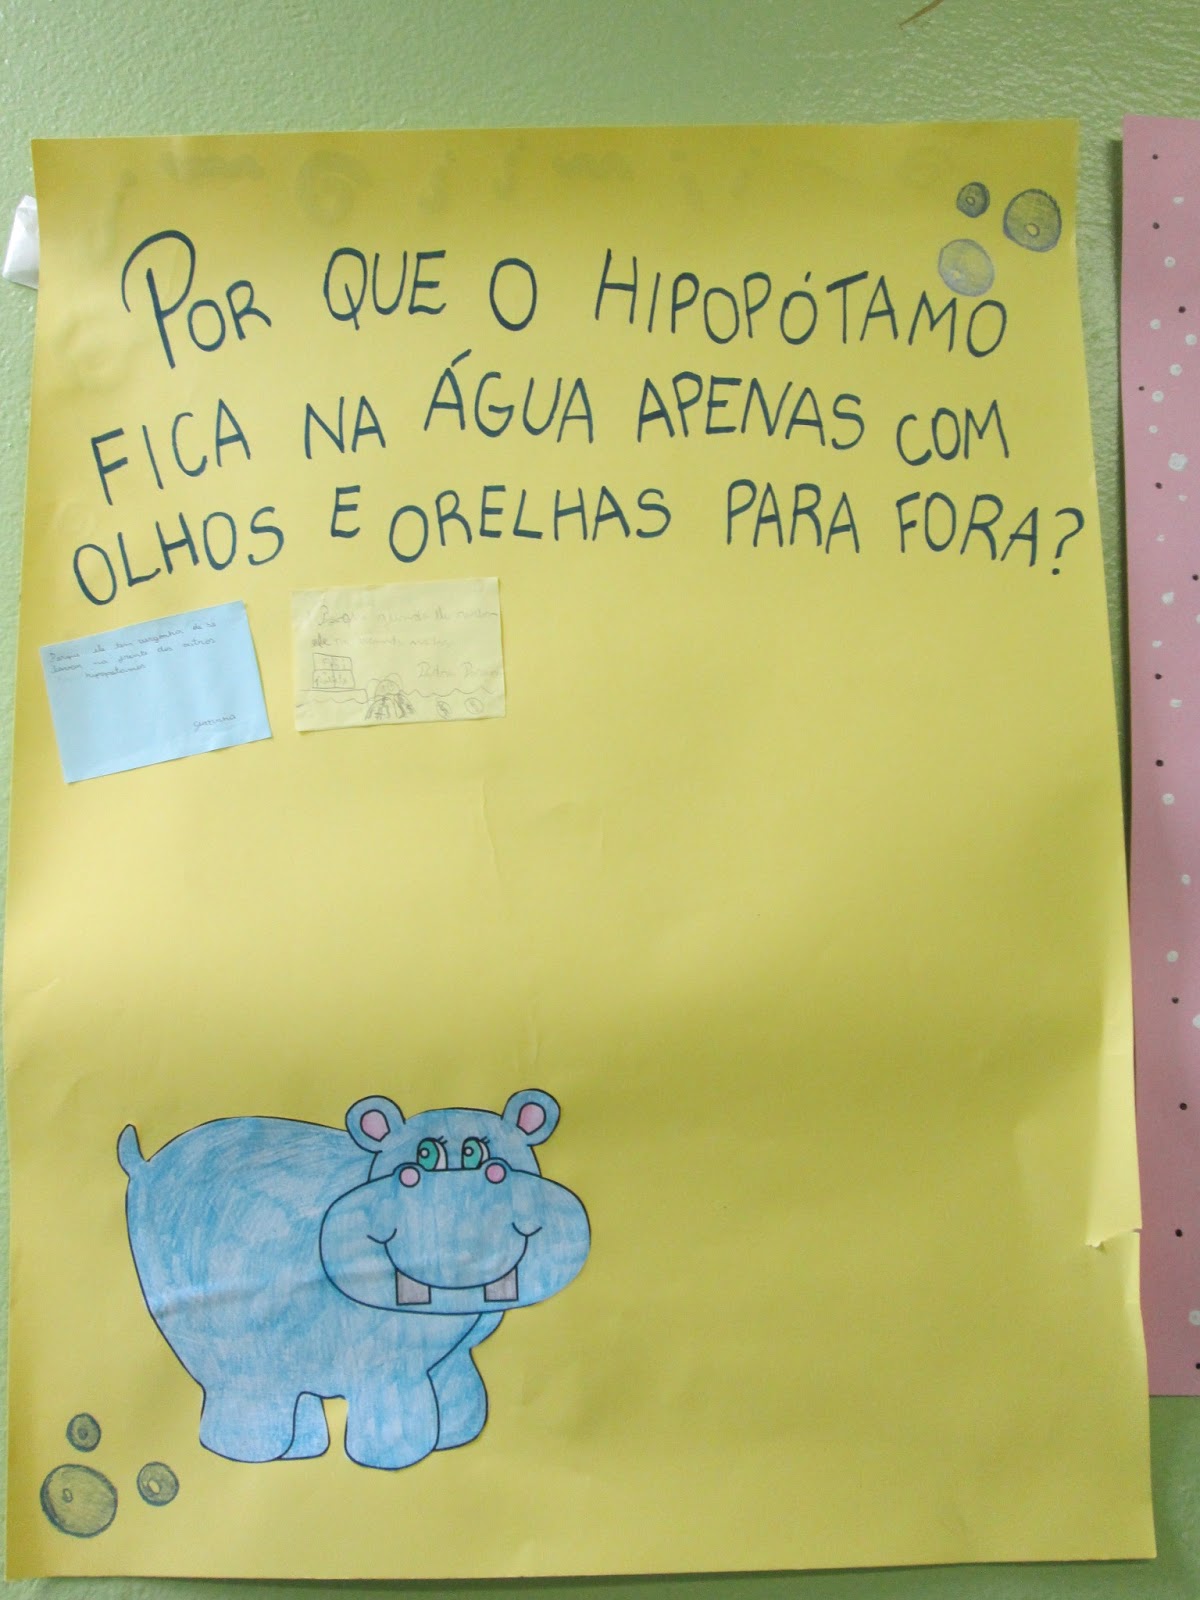 POR QUE O HIPOPÓTAMO
FICA NA ÁGUA APENAS COM
OLHOS E ORELHAS PARA FORA?
Porque ele tem vergonha de se
lavar na frente dos outros
hipopotamos
Giovanna
Pedro